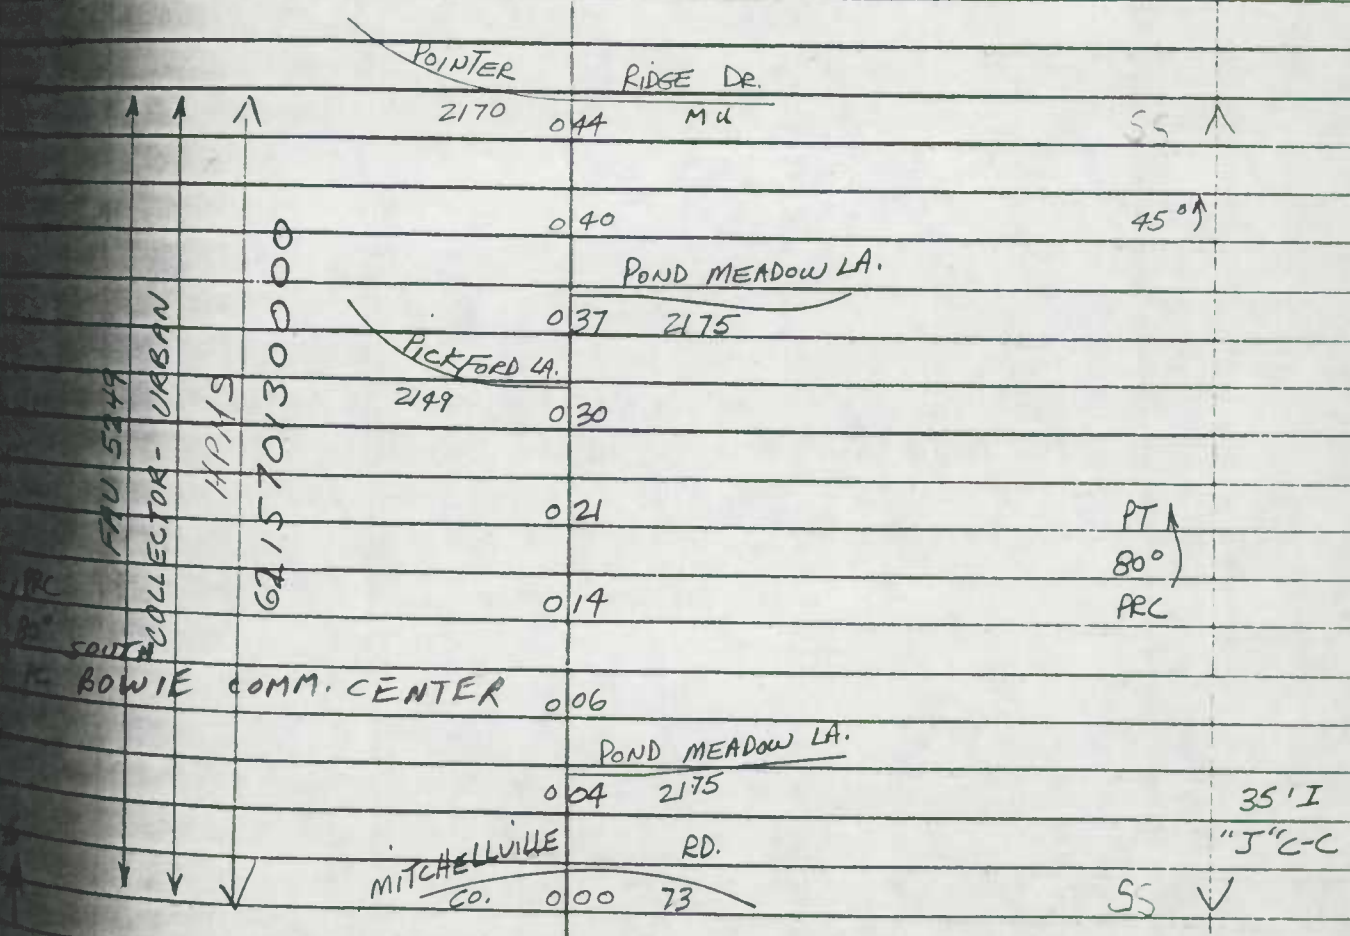 POINTER RIDGE DR.
2170 0 44 MU SS
0 40 45°
POND MEADOW LA.
0 37 2175
PICKFORD LA.
2149
0 30
0 21 PT
80°
0 14 PRC
FAU 5249
COLLECTOR - URBAN
HPMS
6215701300000
PRC
80°
PC
SOUTH
BOWIE COMM. CENTER 0 06
POND MEADOW LA.
0 04 2175 35' I
"J" C-C
MITCHELLVILLE RD.
CO. 0 00 73 SS